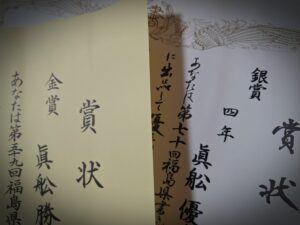 賞状
銀賞
四年
眞舩優
あなたは第七十回福島県書き
に出品して優
賞状
金賞
眞舩勝
あなたは第五十九回福島県